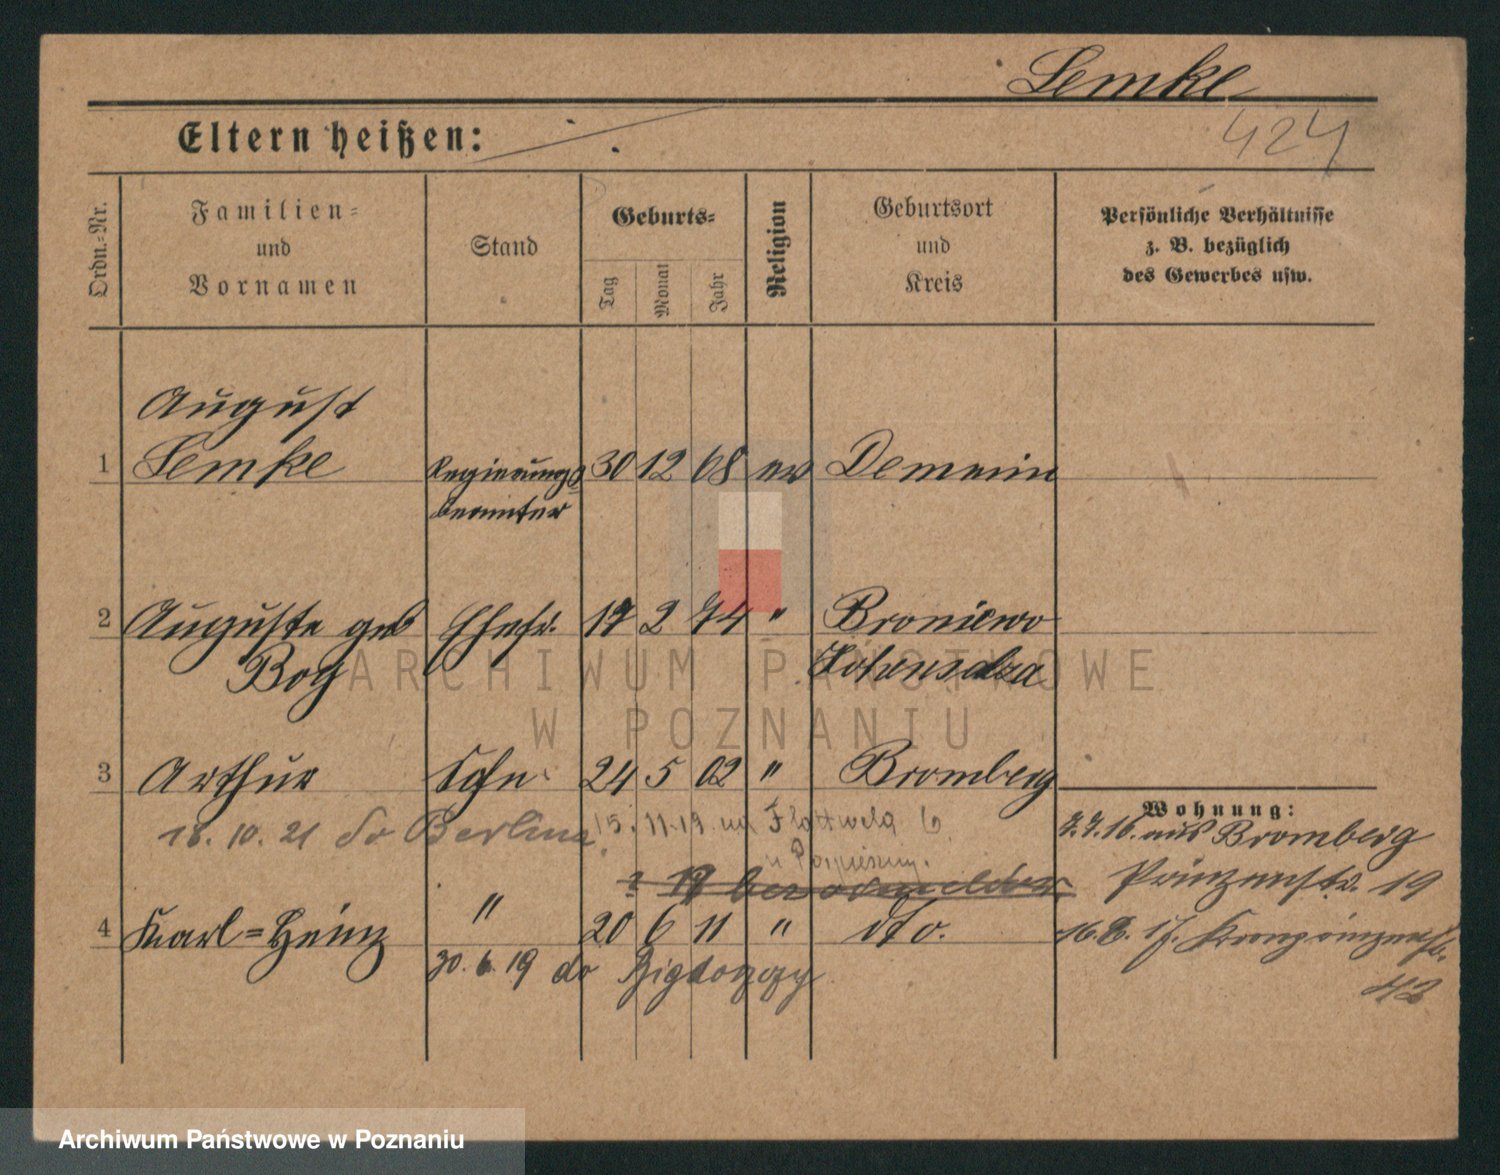 Lemke
424
Eltern heißen:
Ordn.=Nr.
Familien=
und
Vornamen
Stand
Geburts=
Tag
Monat
Jahr
Religion
Geburtsort
und
Kreis
Persönliche Verhältnisse
z. B. bezüglich
des Gewerbes usw.
August
1 Lemke Regierungs 30 12 68 ev Demmin
beamter
2 Auguste geb Ehefr. 17 2 74 " Broniewo
Boy
3 Arthur Sohn 24 5 02 " Bromberg
Wohnung:
18. 10. 21 do Berlina 15. 11 19
7.7.16. aus Bromberg
Prinzenstr. 19
4 Karl=Heinz " 20 6 11 " dto.
16. 8. 17. Kronprinzenstr.
42
30. 6. 19 do
ARCHIWUM PAŃSTWOWE
W POZNANIU
Archiwum Państwowe w Poznaniu